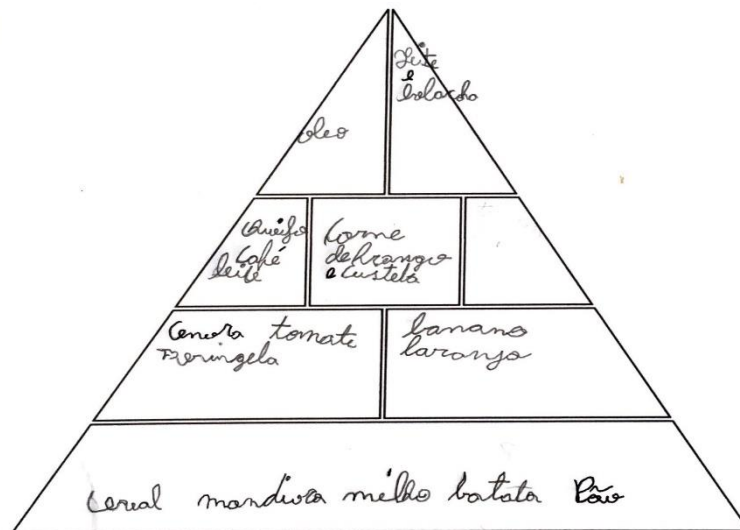 oleo
Leite
e
bolacha
Queijo
Café
leite
Carne
de frango
e custela
Cenora tomate
Beringela
banana
laranja
cereal mandioca milho batata Pão